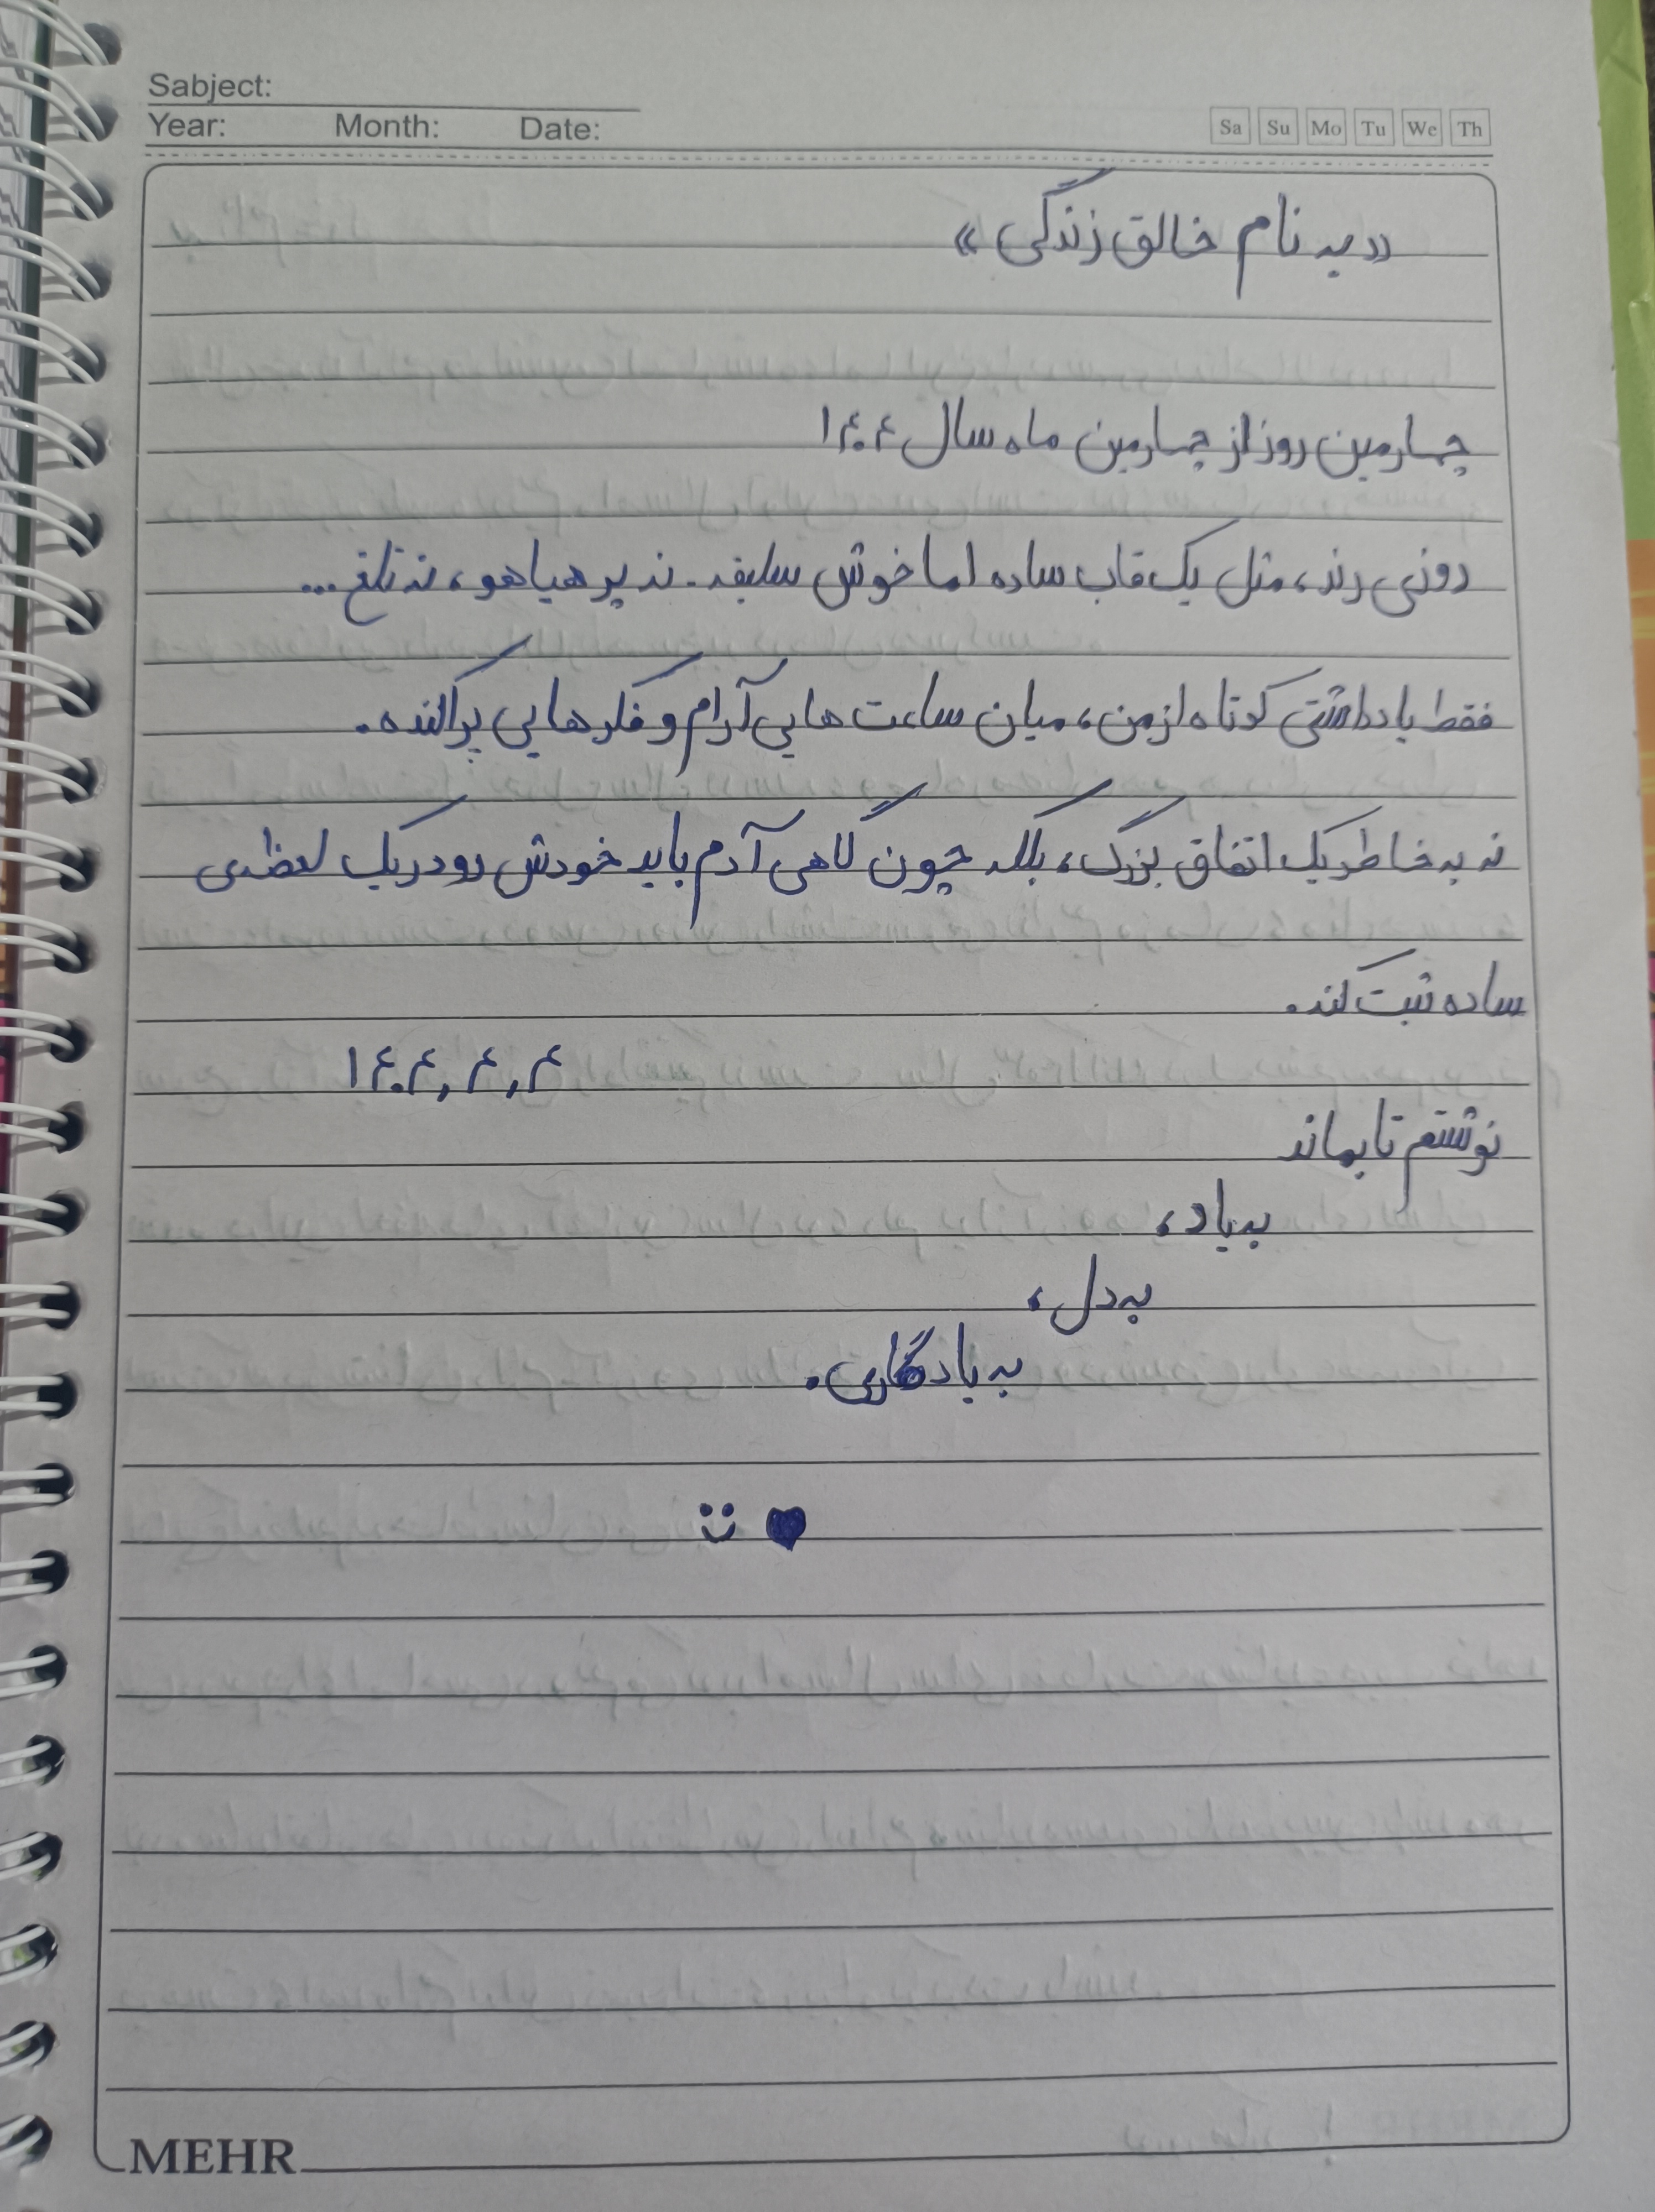 Sabject:
Year: Month: Date:
Sa Su Mo Tu We Th
«به نام خالق زندگی»
چهارمین روز از چهارمین ماه سال ۱۴۰۴
روزی رند، مثل یک قاب ساده اما خوش سلیقه. نه پر هیاهو، نه تلخ...
فقط یادداشتی کوتاه از من، میان ساعت هایی آرام و فکرهایی پراکنده.
نه به خاطر یک اتفاق بزرگ، بلکه چون گاهی آدم باید خودش رو در یک لحظه‌ی
ساده ثبت کند.
۱۴۰۴,۴,۴
نوشتم تا بماند
به یاد،
به دل،
به یادگاری.
MEHR